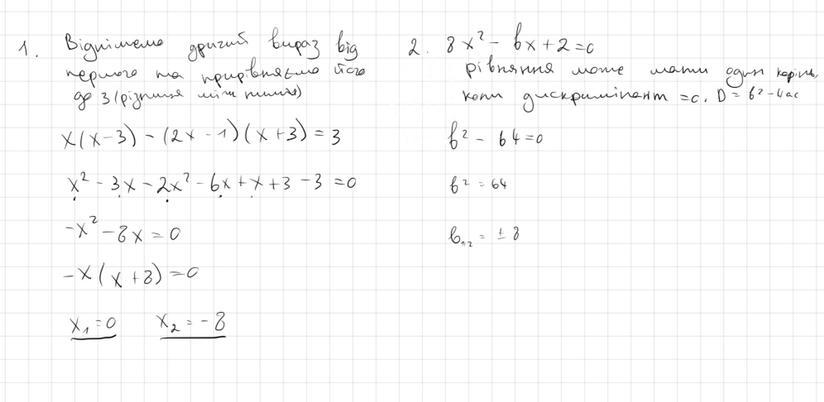 1. Віднімемо другий вираз від
першого та прирівняємо його
до 3 (різниця між ними)
x(x-3) - (2x-1)(x+3) = 3
x² - 3x - 2x² - 6x + x + 3 - 3 = 0
-x² - 8x = 0
-x(x+8) = 0
x₁ = 0 x₂ = -8
2. 8x² - bx + 2 = 0
рівняння може мати один корінь,
коли дискримінант = 0. D = b² - 4ac
b² - 64 = 0
b² = 64
b₁,₂ = ± 8